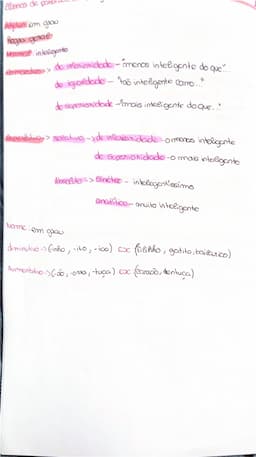 Adjetivo em grau
Normal: inteligente
Comparativo -> de inferioridade - "menos inteligente do que"
de igualdade - "tão inteligente como..."
de superioridade - "mais inteligente do que.."
Superlativo -> relativo -> de inferioridade - o menos inteligente
de superioridade - o mais inteligente
Absoluto -> Sintético - inteligentíssimo
analítico - muito inteligente
Nome em grau
diminutivo -> (inho, -ito, -ico) ex: (gatito, burrico)
Aumentativo -> (ão, -ona, -tuça) ex: